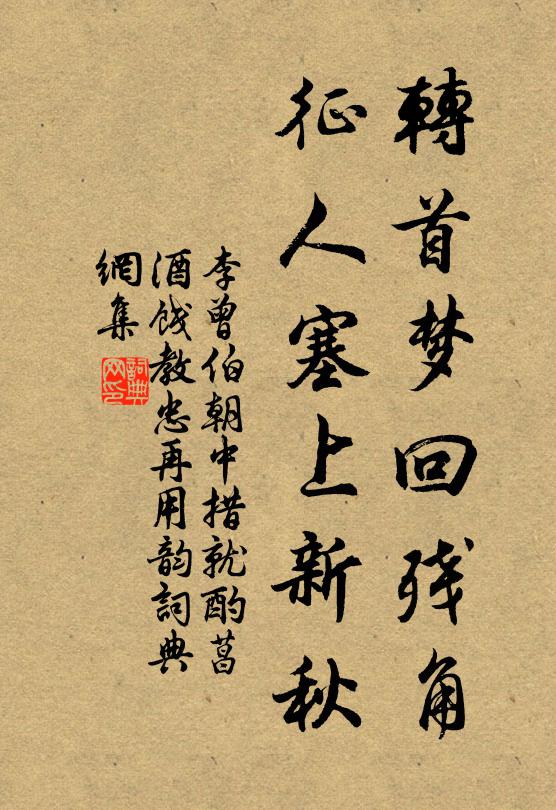 轉首梦回残角
征人塞上新秋
李曾伯朝中措就酌菖
酒饯教忠再用韵詞典
網集
詞典网印